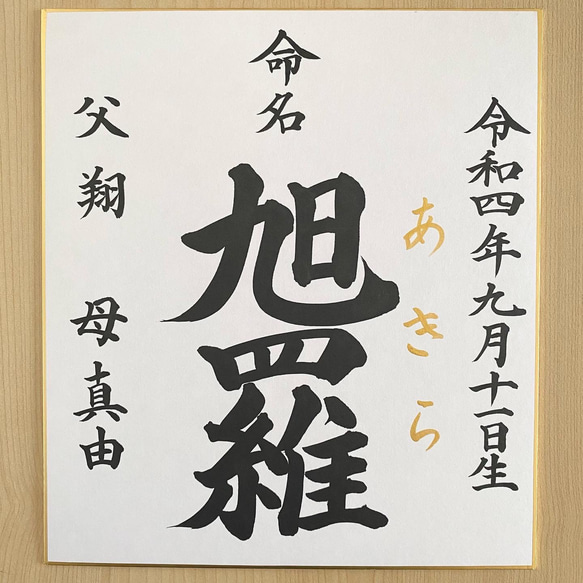 命名
令和四年九月十一日生
あきら
旭羅
父 翔
母 真由